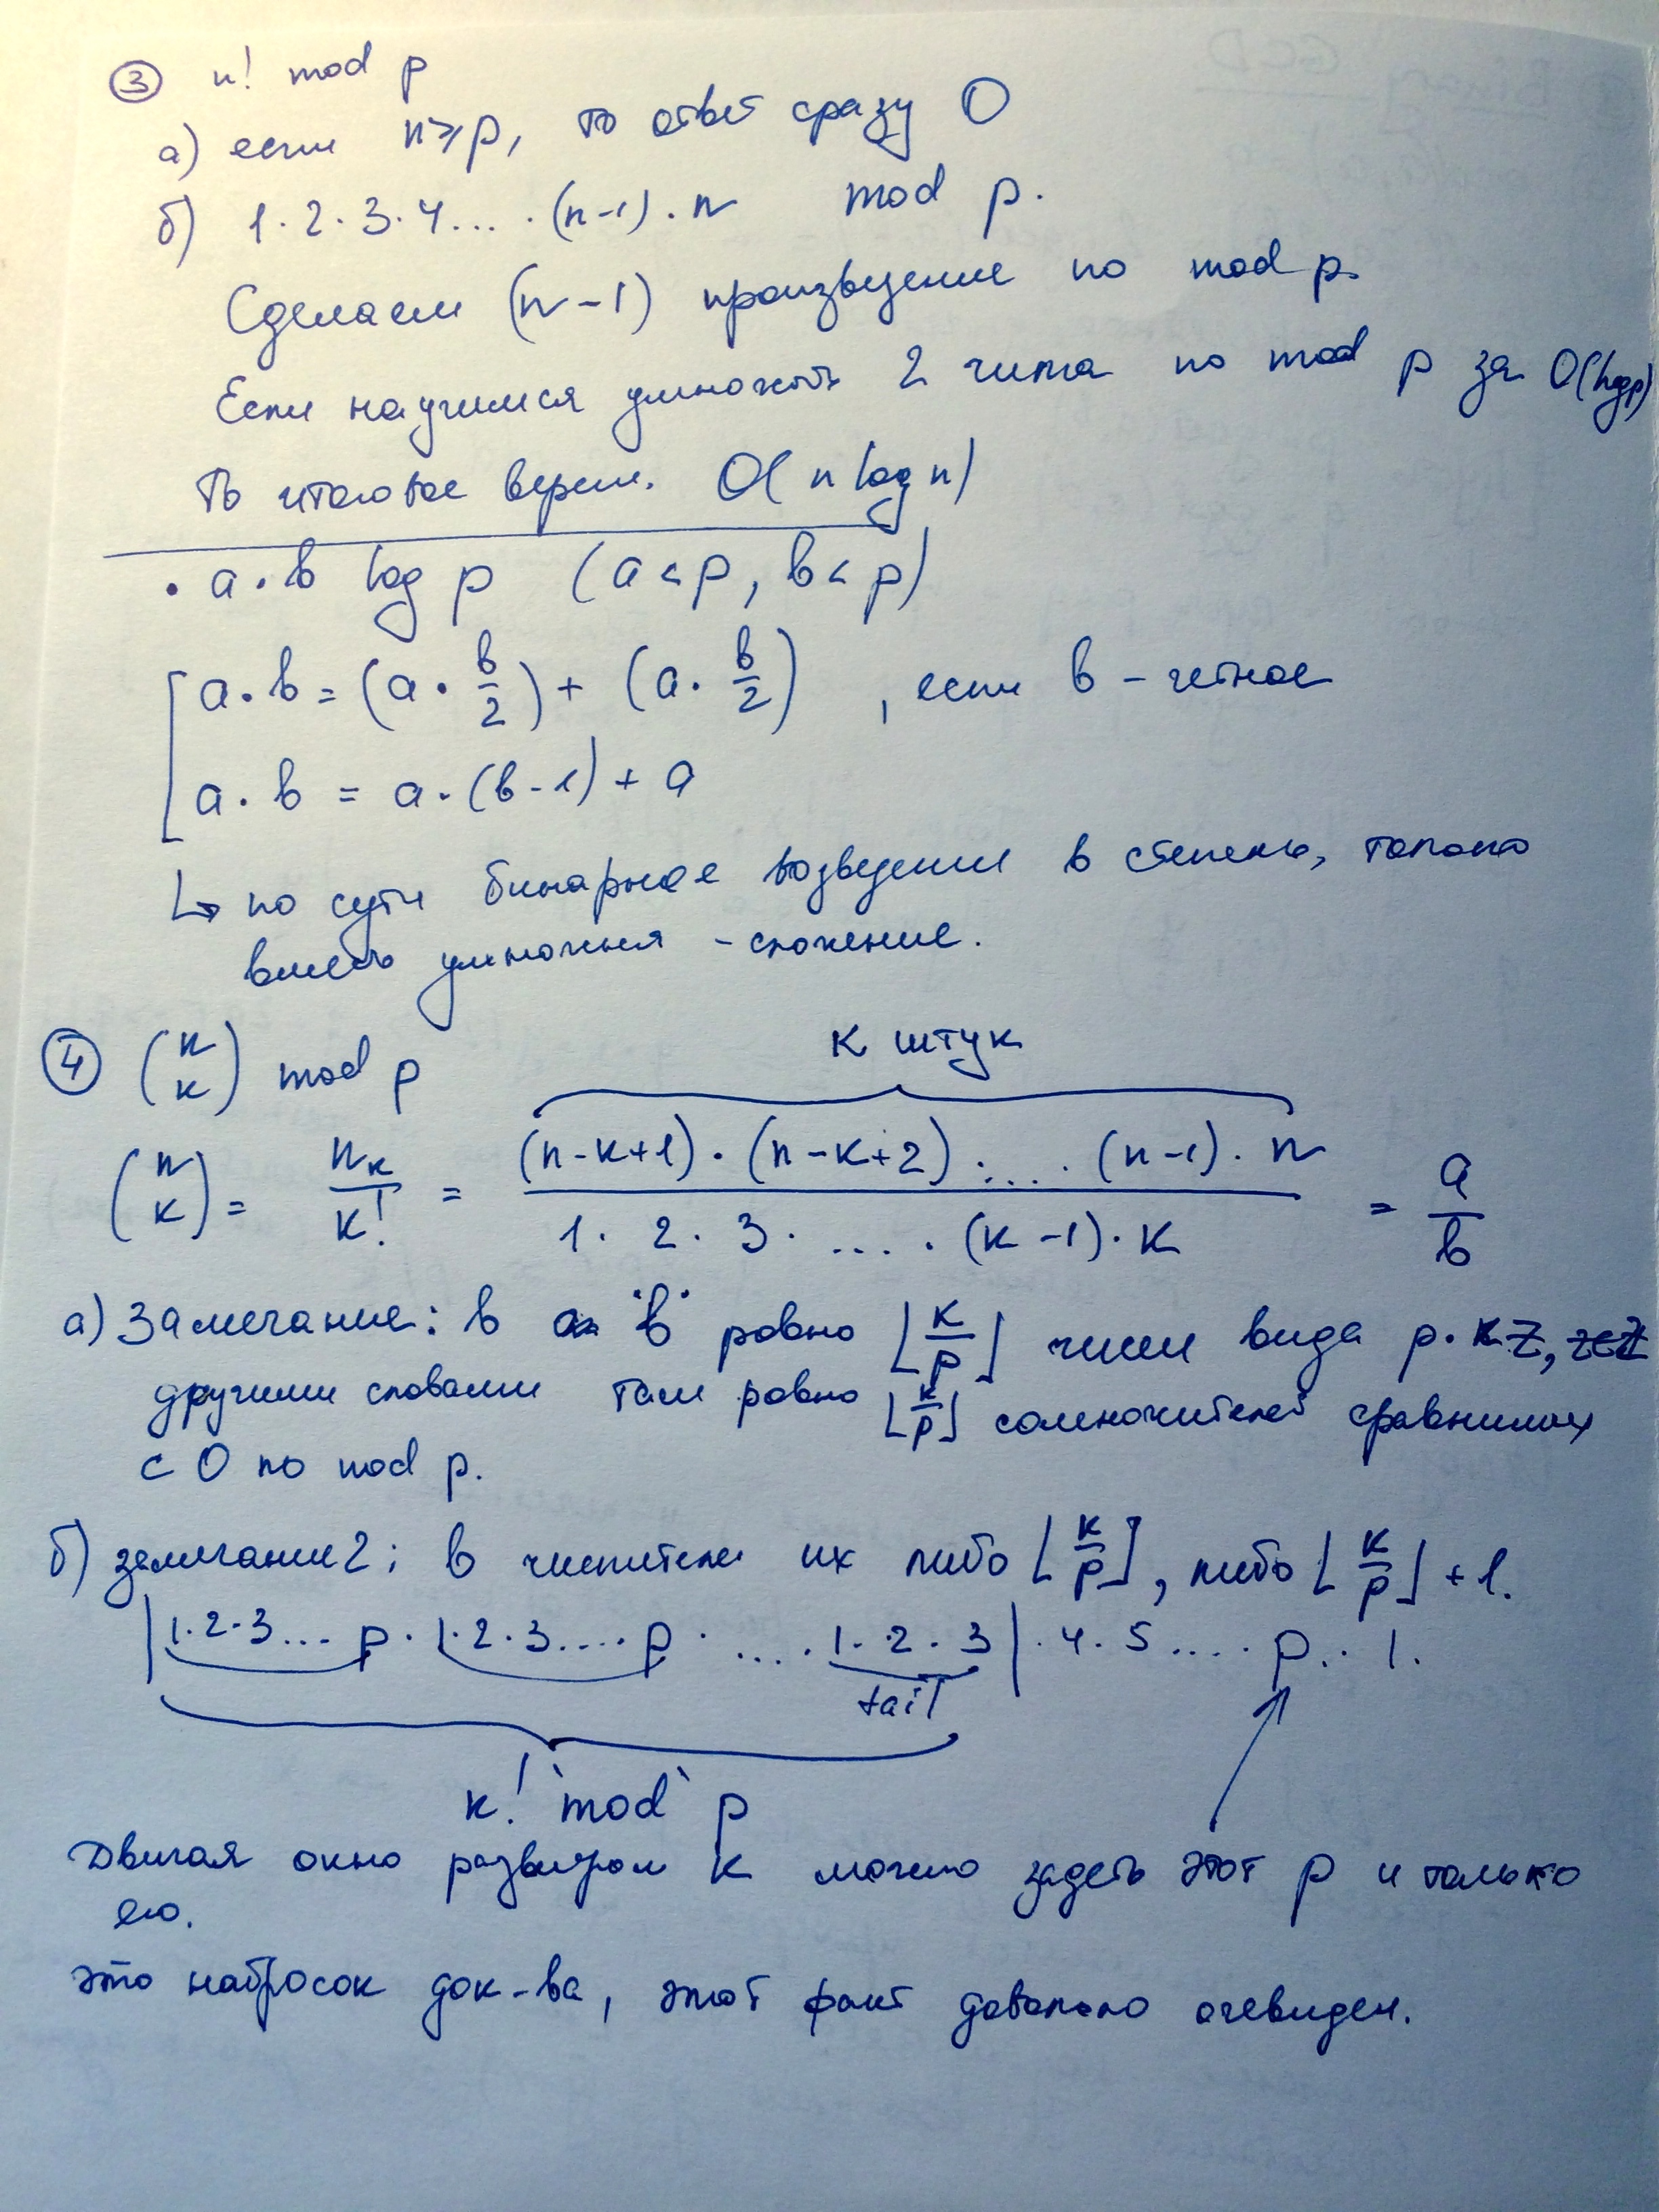 ③ n! mod p
а) если n ≥ p, то ответ сразу 0
б) 1·2·3·4... ·(n-1)·n mod p.
Сделаем (n-1) произведение по mod p.
Если научимся умножать 2 числа по mod p за O(log p)
То итоговое время. O(n log n)
• a·b log p (a<p, b<p)
a·b = (a·b/2) + (a·b/2), если b - четное
a·b = a·(b-1) + a
↳ по сути бинарное возведение в степень, только
вместо умножения - сложение.
④ (n k) mod p
k штук
(n k) = n_k / k! = (n-k+1)·(n-k+2)·...·(n-1)·n / 1·2·3·....·(k-1)·k = a/b
а) Замечание: в "b" равно ⌊k/p⌋ чисел вида p·z, z∈Z
другими словами там равно ⌊k/p⌋ сомножителей сравнимых
с 0 по mod p.
б) замечание 2: в числителе их либо ⌊k/p⌋, либо ⌊k/p⌋ + 1.
|1·2·3... p·1·2·3....p· ....·1·2·3|·4·5....·p..1.
tail
k! `mod` p
Двигая окно размером k можно задеть этот p и только
его.
это набросок док-ва, этот факт довольно очевиден.